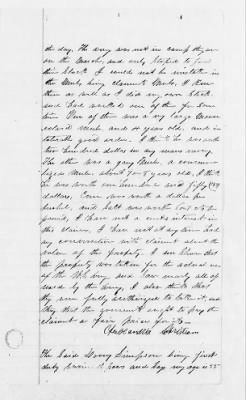 the day. The army was not in camp they were
on the March, and only stopped to feed
their stock I could not be mistaken in
the Mules being claimants Mules, I knew
them as well as I did my own stock
and had worked one of them for some
time One of them was a very large
colored Mule, and years old, and in
good order. I think he was worth
two hundred dollars in any mans money.
The other was a gray Mule, a common
sized Mule about 7 or 8 years old, I think
he was worth one hundred and fifty
dollars, Corn was worth a dollar per
bushel, and salt was worth
pound, I have not a cents interest in
this claim, I have not at any time had
any conversation with claimant about the
value of the property. I am sure that
the property was taken for the actual use
of the U.S. Army, as I saw nearly all of
used by the Army, I also think that
they were fully authorized to take it, and
that the government ought to pay the
claimant a fair price for it

The said Henry Simpson being first
duly sworn and says my age is 55